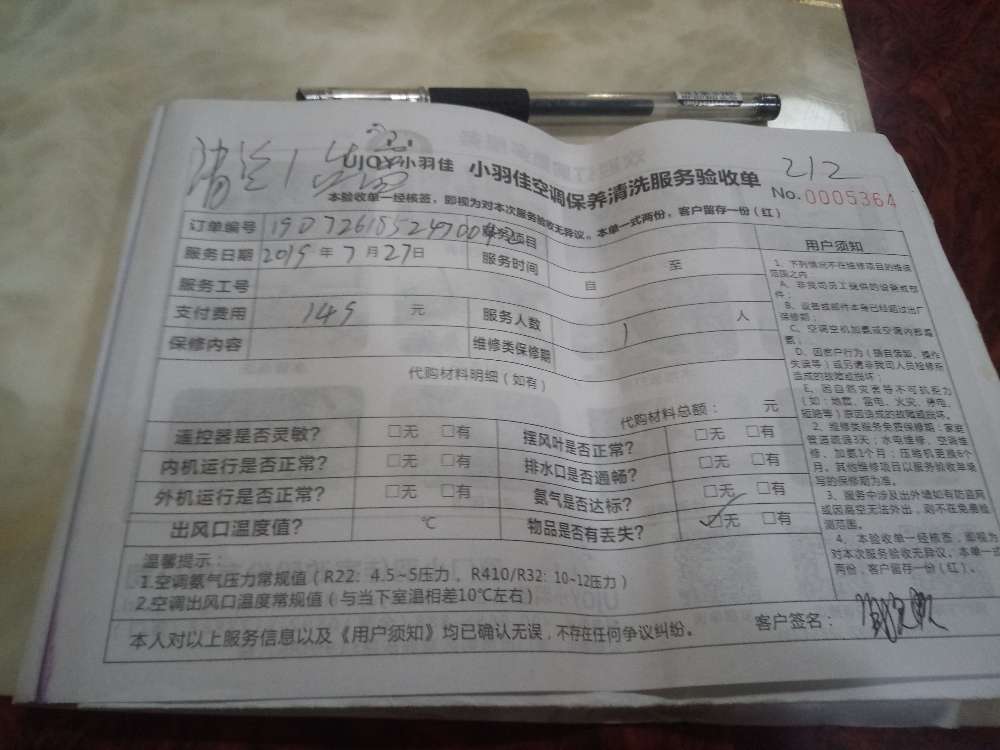 212
UJOY小羽佳 小羽佳空调保养清洗服务验收单
No.0005364
本验收单一经核签，即视为对本次服务验收无异议。本单一式两份，客户留存一份（红）
订单编号 服务项目
服务日期 2019年7月27日 服务时间 自 至
服务工号
支付费用 149 元 服务人数 1 人
保修内容 维修类保修期
代购材料明细（如有）
代购材料总额： 元
遥控器是否灵敏？ □无 □有 摆风叶是否正常？ □无 □有
内机运行是否正常？ □无 □有 排水口是否通畅？ □无 □有
外机运行是否正常？ □无 □有 氨气是否达标？ □无 □有
出风口温度值？ ℃ 物品是否有丢失？ ☑无 □有
温馨提示：
1.空调氨气压力常规值（R22：4.5~5压力，R410/R32：10~12压力）
2.空调出风口温度常规值（与当下室温相差10℃左右）
本人对以上服务信息以及《用户须知》均已确认无误，不存在任何争议纠纷。 客户签名：
用户须知
1、下列情况不在维修项目的维保
范围之内
A、非我司员工提供的设备或部
件；
B、设备或部件本身已经超过出厂
保修期；
C、空调空机加氨或空调内部漏
氨；
D、因客户行为（擅自装卸、操作
失误等）或另请非我司人员检修所
造成的故障或损坏；
E、因自然灾害等不可抗拒力
（如：地震、雷电、火灾、停电、
短路等）原因造成的故障或损坏。
2、维修类服务免费保修期：家庭
管道疏通3天；水电维修、空调维
修、加氨1个月；压缩机更换6个
月。其他维修项目以服务验收单填
写的保修期为准。
3、服务中涉及出外墙如有防盗网
或因高空无法外出，则不在免费检
测范围。
4、本验收单一经核签，即视为
对本次服务验收无异议。本单一式
两份，客户留存一份（红）。